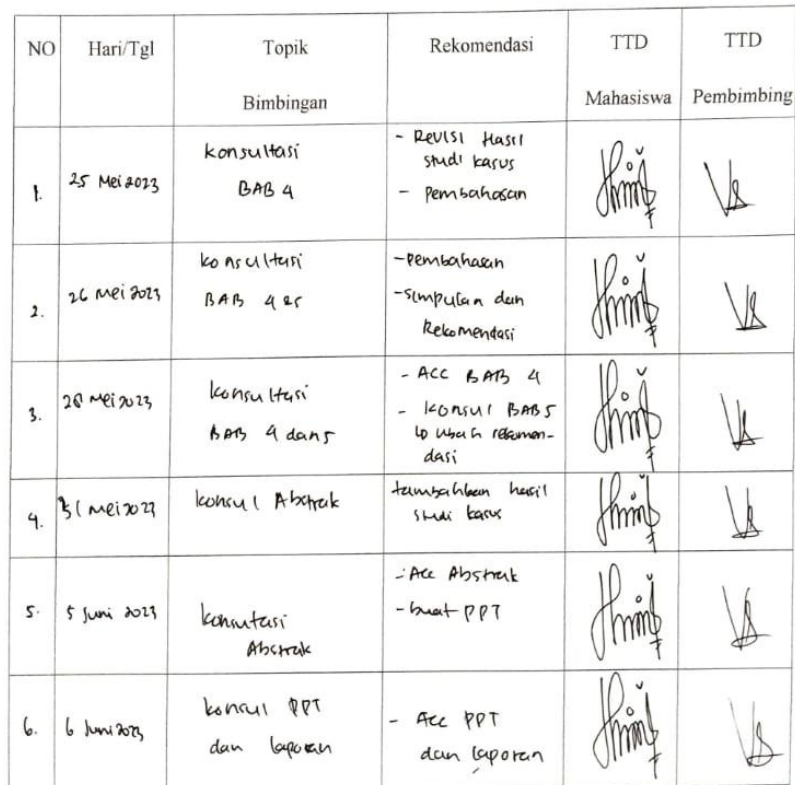 NO Hari/Tgl Topik Bimbingan Rekomendasi TTD Mahasiswa TTD Pembimbing
1. 25 Mei 2023 konsultasi BAB 4 - Revisi Hasil studi kasus - Pembahasan
2. 26 Mei 2023 konsultasi BAB 4 - Pembahasan - Simpulan dan Rekomendasi
3. 28 Mei 2023 konsultasi BAB 4 dan 5 - ACC BAB 4 - konsul BAB 5 ubah rekomendasi
4. 31 Mei 2023 konsul Abstrak tambahkan hasil studi kasus
5. 5 Juni 2023 konsutasi Abstrak - Acc Abstrak - buat PPT
6. 6 Juni 2023 konsul PPT dan laporan - Acc PPT dan laporan